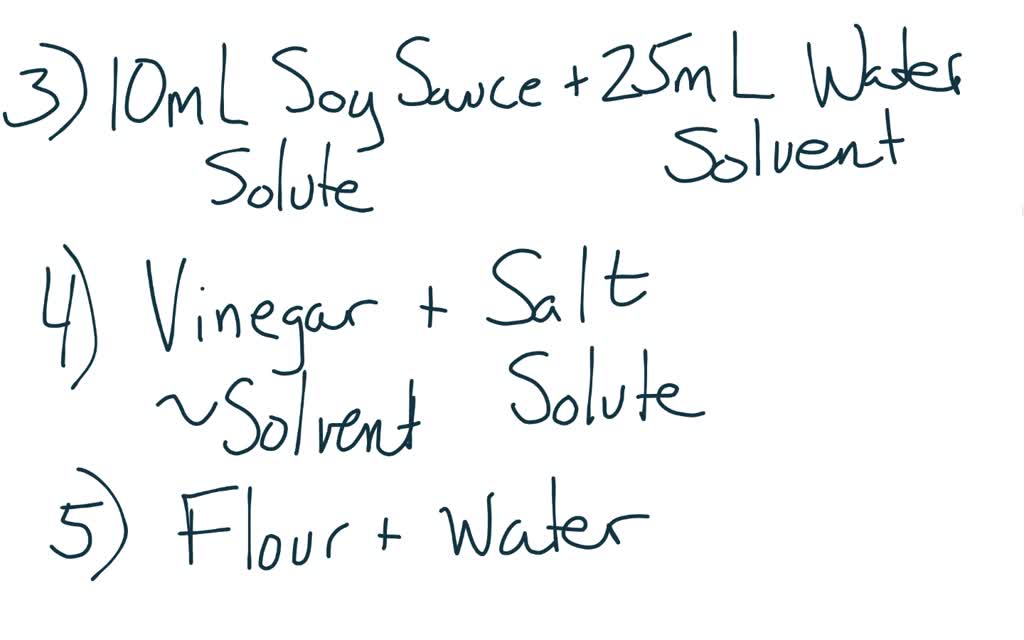 3) 10mL Soy Sauce + 25mL Water
Solute Solvent
4) Vinegar + Salt
~Solvent Solute
5) Flour + Water